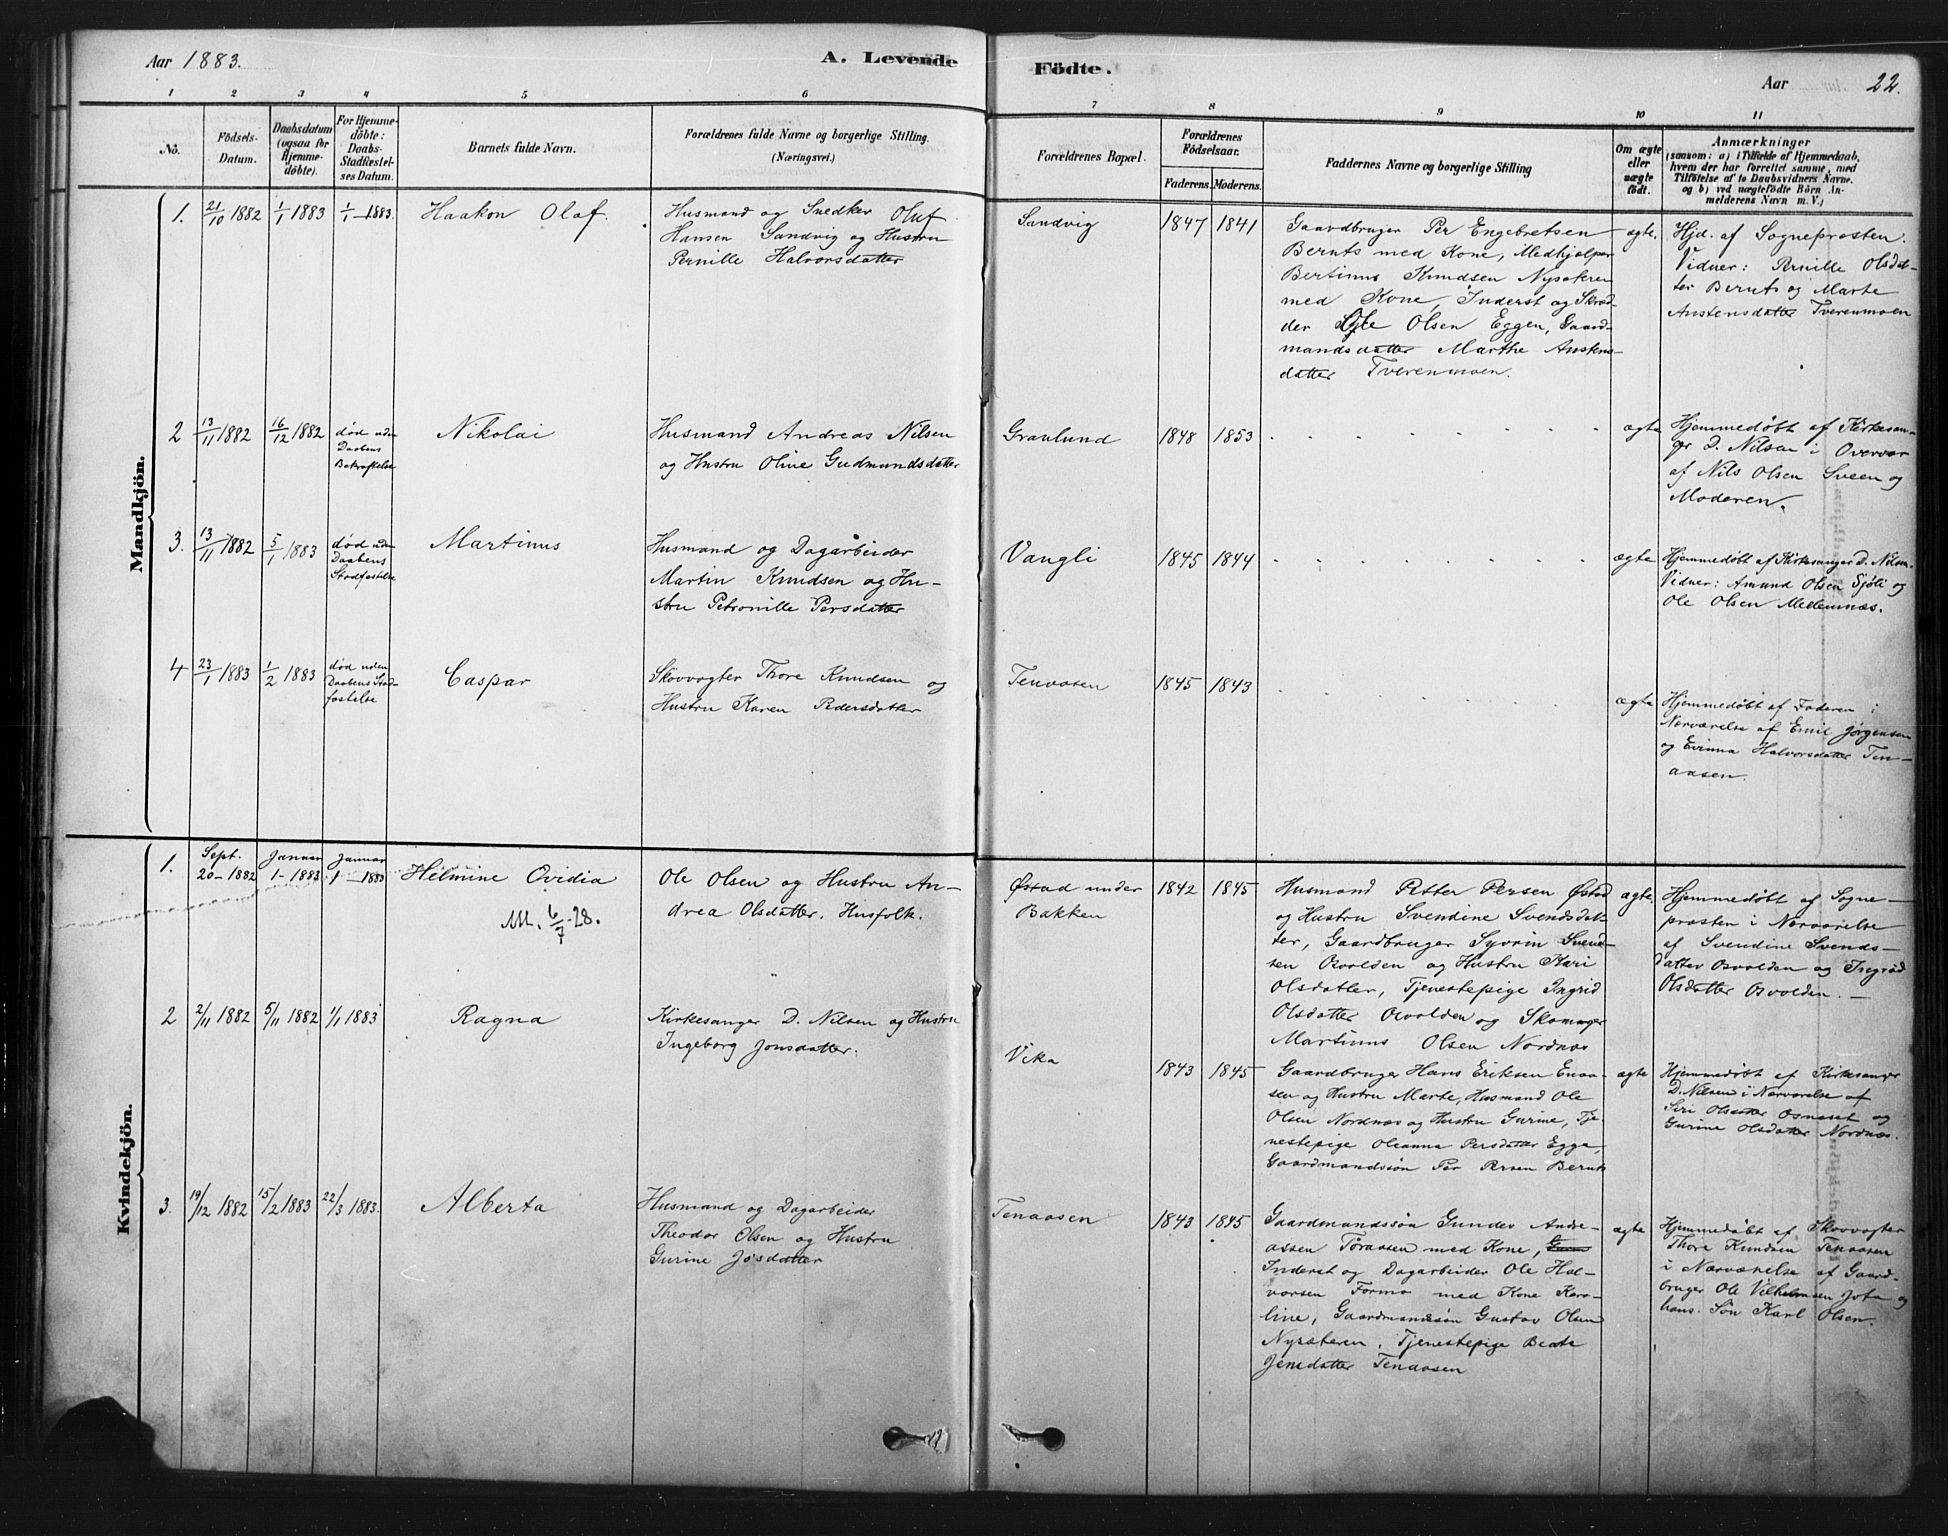 Aar 1883.
A. Levende
Födte.
Aar 22.
1 2 3 4 5 6 7 8 9 10 11
No.
Födsels-
Datum.
Daabsdatum
(ogsaa for
Hjemme-
döbte).
For Hjemme-
döbte:
Daabs-
Stadfæstel-
ses Datum.
Barnets fulde Navn.
Forældrenes fulde Navne og borgerlige Stilling.
(Næringsvei.)
Forældrenes Bopæl.
Forældrenes
Födselsaar.
Faderens. Moderens.
Faddernes Navne og borgerlige Stilling
Om ægte
eller
uægte
födt.
Anmærkninger
(saasom: a) i Tilfælde af Hjemmedaab,
hvem der har forrettet samme, med
Tilföielse af to Daabsvidners Navne.
og b) ved uægtefödte Börn An-
melderens Navn m. V.)
Mandkjön.
1. 21/10 1882 1/1 1883 1/1 1883. Haakon Olaf
Husmand og Snedker Oluf
Hansen Sandvig og Hustru
Pernille Halvorsdatter
Sandvig 1847 1841
Gaardbruger Per Engebretsen
Bernts med Kone, Medhjelper
Bertinus Knudsen Nysæteren
med Kone, Inderst og Skræd-
der Ole Olsen Eggen, Gaard-
mandsdatter Marthe Anstens-
datter Tverenmoen.
ægte.
Hjd. af Sognepresten.
Vidner: Pernille Olsdat-
ter Bernts og Marte
Anstensdatter Tverenmoen
2 13/11 1882 16/12 1882 død uden
Daabens
Bekræftelse
Nikolai
Husmand Andreas Nilsen
og Hustru Oline Gudmundsdatter
Graulund 1848 1853 ægte
Hjemmedøbt af Kirkesan-
ger D. Nilsen i Overvær
af Nils Olsen Sveen og
Moderen.
3. 13/11 1882 5/1 1883 død uden
Daabens
Stadfæstelse
Martinus
Husmand og Dagarbeider
Martin Knudsen og Hu-
stru Petronille Persdatter
Vangli 1845 1844 ægte
Hjemmedøbt af Kirkesanger D. Nilsen
Vidner: Amund Olsen Sjøli og
Ole Olsen Mellemnæs.
4 23/1 1883 1/2 1883 død uden
Daabens Stad-
fæstelse
Caspar
Skovvogter Thore Knudsen og
Hustru Karen Pedersdatter
Tenaasen 1845 1843 ægte
Hjemmedøbt af Faderen i
Nærværelse af Emil Jørgensen
og Evinna Halvorsdatter Ten-
aasen.
Kvindekjön.
1. Sept. 20 - 1882 Januar 1 - 1883 Januar 1 - 1883 Helmine Ovidia
M. 6/7-28.
Ole Olsen og Hustru An-
drea Olsdatter. Husfolk.
Østad under
Bakken
1842 1845
Husmand Petter Persen Østad
og Hustru Svendine Svendsdat-
ter, Gaardbruger Syvrin Svend-
sen Osvolden og Hustru Kari
Olsdatter, Tjenestepige Ingrid
Olsdatter Osvolden og Skomager
Martinus Olsen Nordnæs
ægte.
Hjemmedøbt af Sogne-
presten i Nærværelse
af Svendine Svends-
datter Osvolden og Ingrid
Olsdatter Osvolden.
2 2/11 1882 5/11 1882 1/1 1883 Ragna
Kirkesanger D. Nilsen og Hustru
Ingeborg Jonsdatter.
Vika 1843 1845
Gaardbruger Hans Eriksen Enaa-
sen og Hustru Marte, Husmand Ole
Olsen Nordnæs og Hustru Gurine, Tje-
nestepige Oleanna Persdatter Egga,
Gaardmandssøn Per Persen Bernts
ægte
Hjemmedøbt af Kirkesanger
D. Nilsen i Nærværelse af
Siri Olsdatter Osneset og
Gurine Olsdatter Nordnæs.
3. 19/12 1882 15/2 1883 22/3 1883. Alberta
Husmand og Dagarbeider
Theodor Olsen og Hustru
Gurine Josdatter
Tenaasen 1843 1845
Gaardmandssøn Gunder Andre-
assen Toraasen med Kone,
Inderst og Dagarbeider Ole Hal-
vorsen Formo med Kone Karo-
line, Gaardmandssøn Gustav Olsen
Nysæteren. Tjenestepige Beate
Jensdatter Tenaasen
ægte
Hjemmedøbt af Skovvogter
Thore Knudsen Tenaasen
i Nærværelse af Gaard-
bruger Ole Vilhelmsen Jota og
hans Søn Karl Olsen.